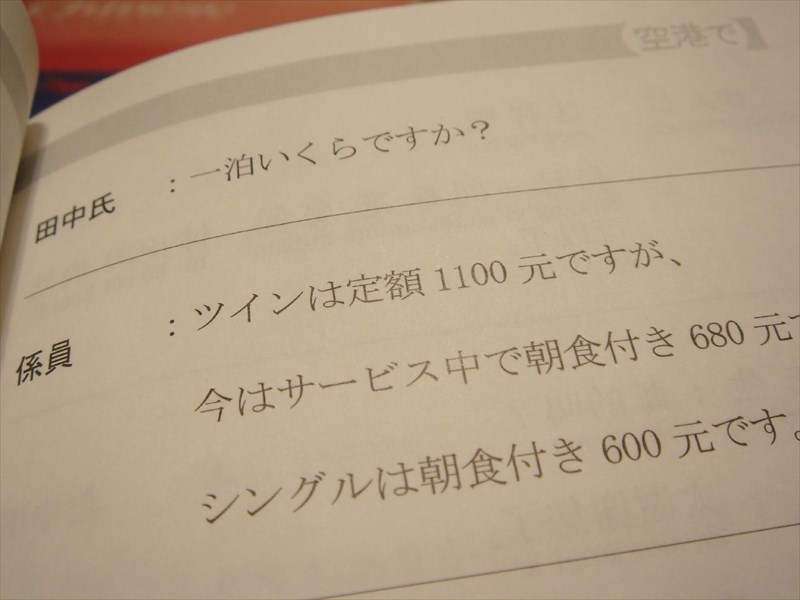 田中氏 : 一泊いくらですか?
係員 : ツインは定額 1100 元ですが、
今はサービス中で朝食付き 680 元で
シングルは朝食付き 600 元です。